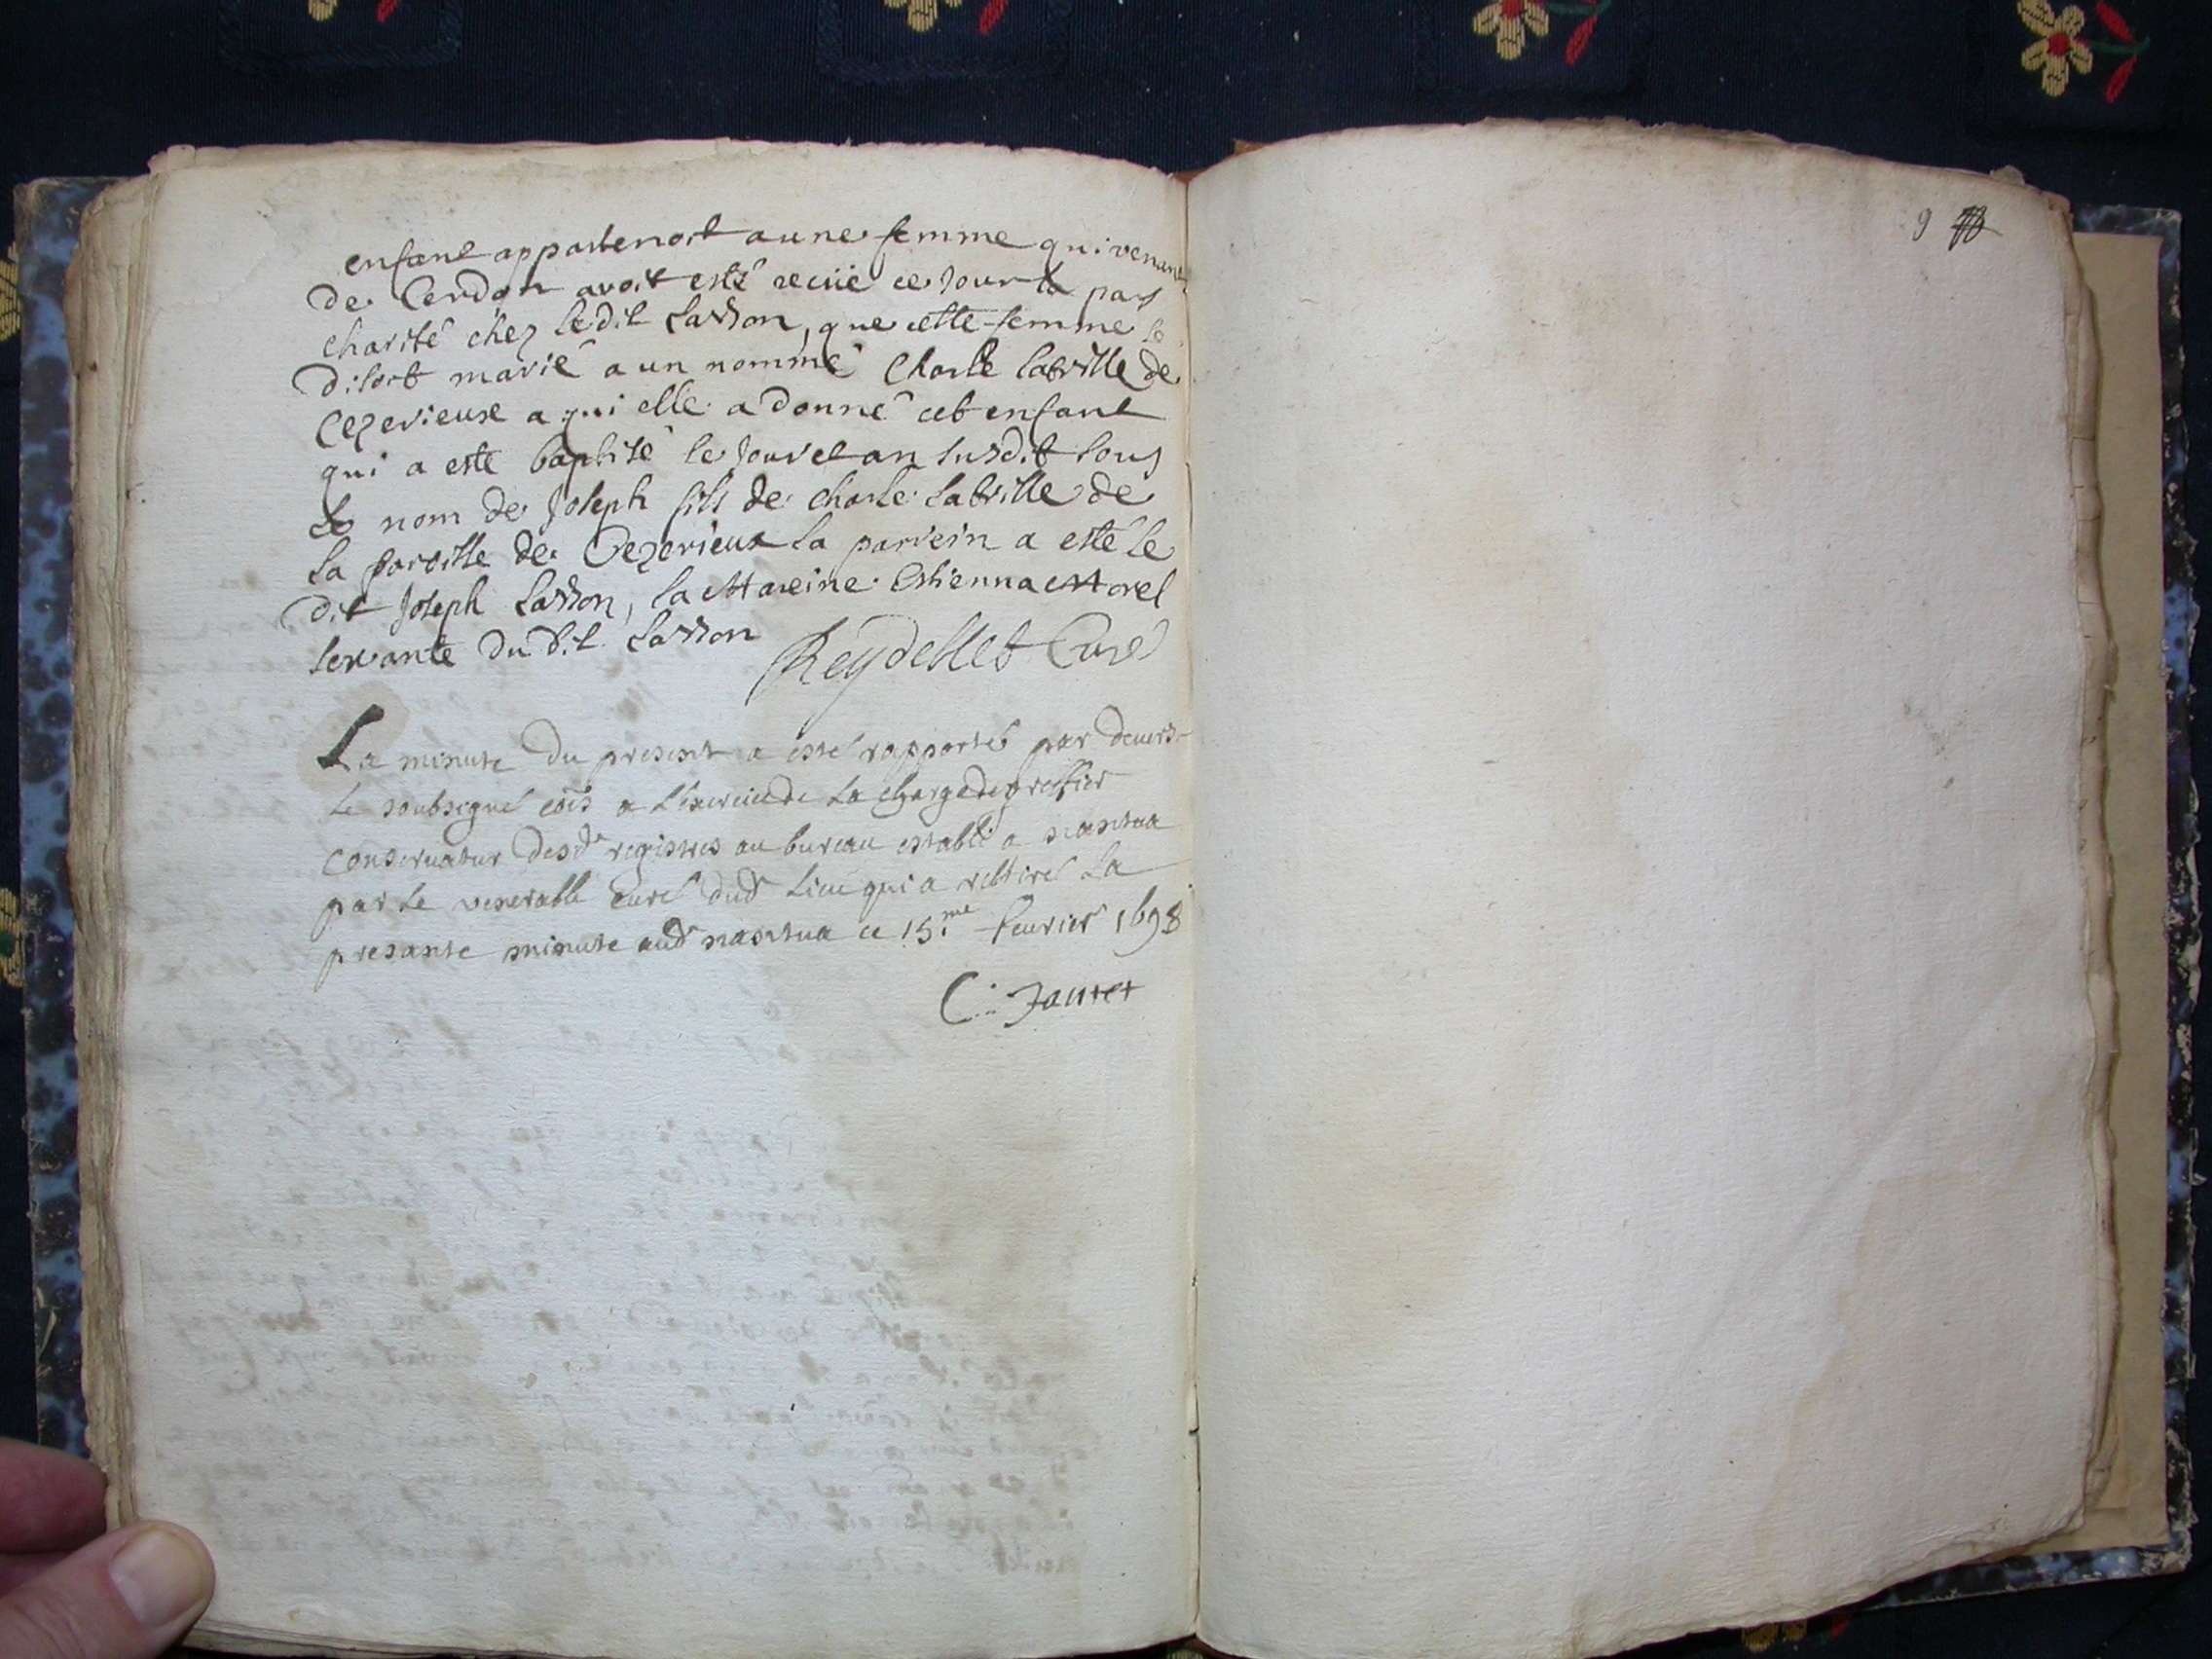 enfant appartenoit a une femme qui venant
de Cerdon avoit esté receüe ce Jour la par
charité chez ledit Lasson, que cette femme se
disoit marié a un nommé Charle Labville de
Cezerieuse a qui elle a donné cet enfant
qui a este baptisé le Jour et an susdit sous
le nom de Joseph fils de Charle Labville de
la paroisse de Cezerieux la parrein a esté le
dit Joseph Lasson, la Mareine Estienna Morel
servante du dit Lasson
Reydellet Curé
La minute du present a esté rapportée par devers
le soubsigné cõis a l'exercice de la charge de greffier
conservatur desd registres au bureau establi a nantua
par le venerable Curé dud lieu qui a rettiré la
presante minute aud nantua ce 15.me fevrier 1698
C. Jantet
9